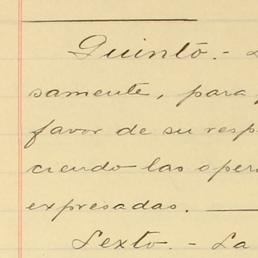 Quinto.-
samente, para
favor de su resp
ciendo las opera
expresadas.
Sexto.- La